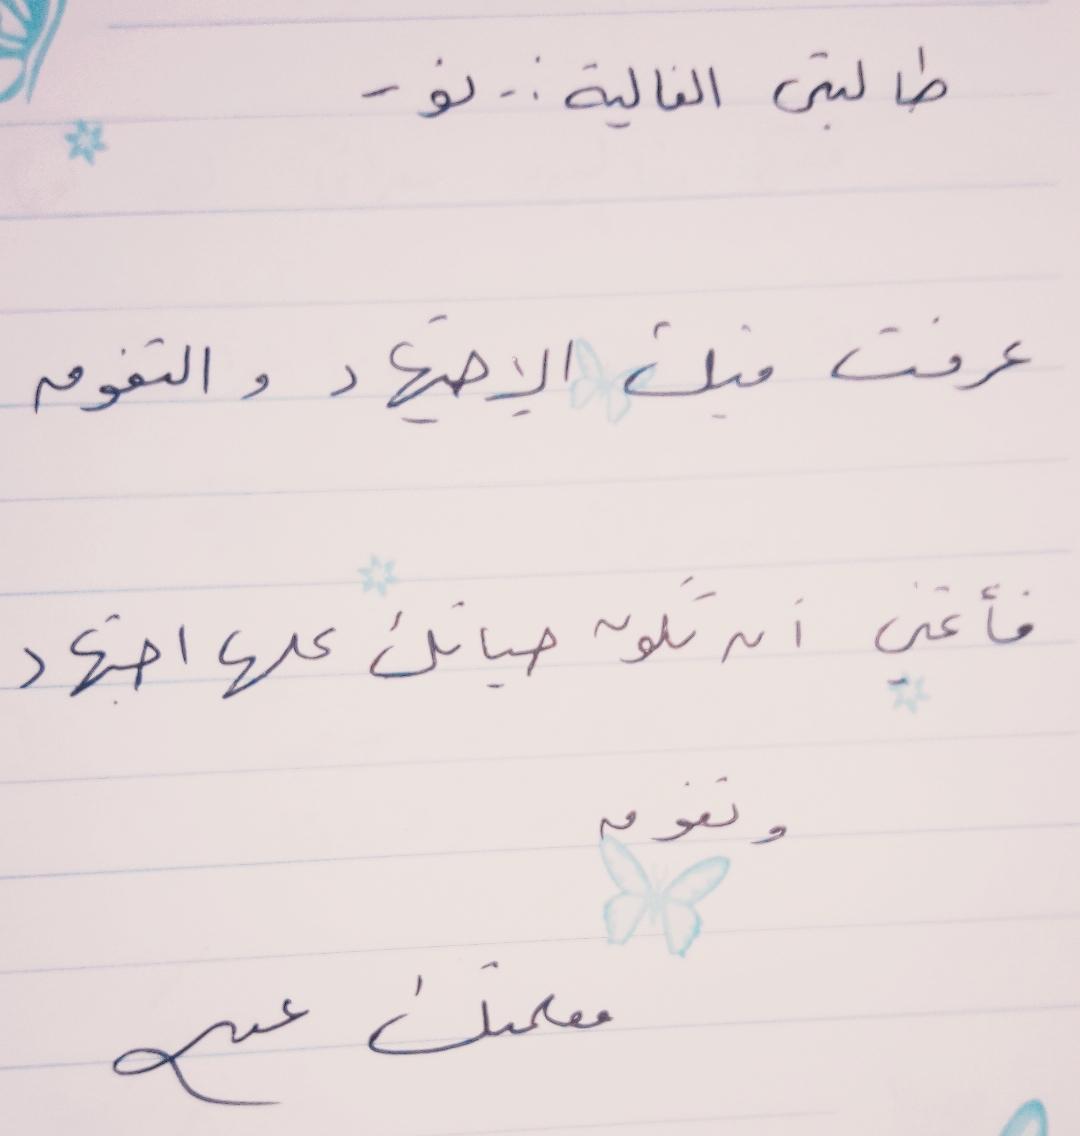 طالبتي الغالية :- نو -
عرفت فيك الإجتهاد و التفوق
فأتمنى أن تكون حياتك كلها اجتهاد
وتفوق
معلمتك عبير